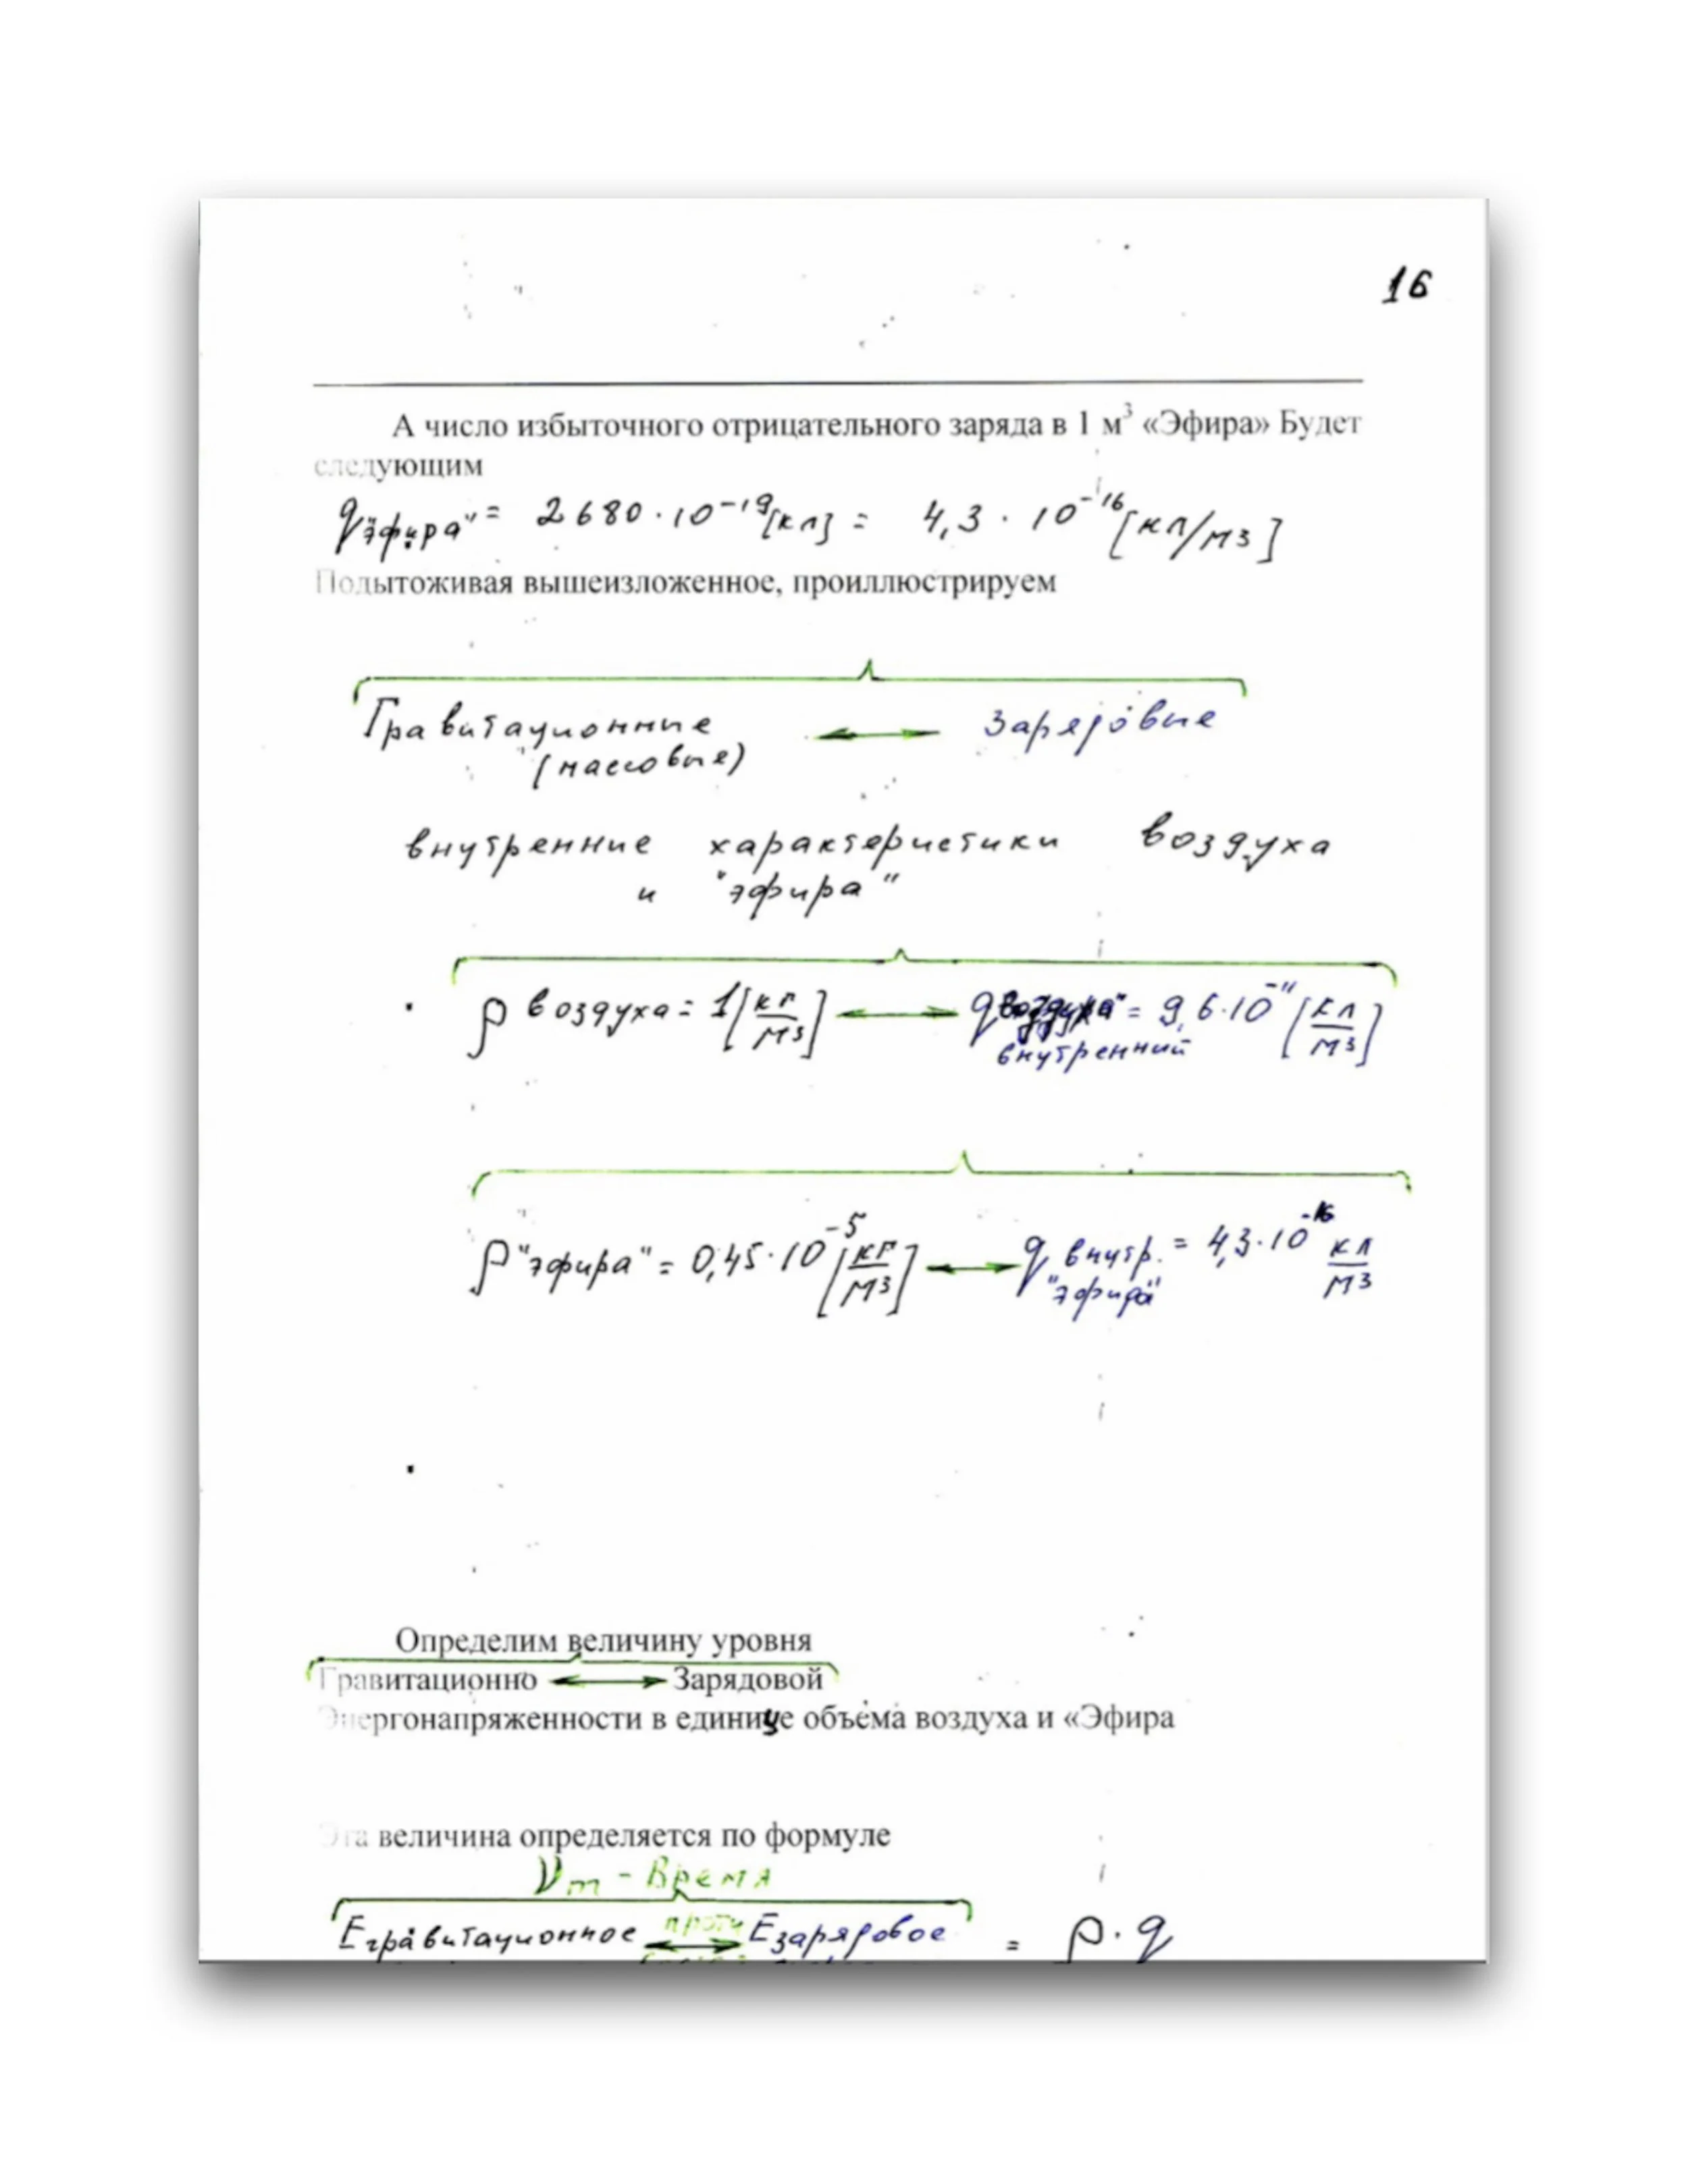 16
А число избыточного отрицательного заряда в 1 м³ «Эфира» Будет
следующим
q"эфира" = 2680·10⁻¹⁹[кл] = 4,3·10⁻¹⁶[кл/м3]
Подытоживая вышеизложенное, проиллюстрируем
Гравитационные ⟷ Зарядовые
(массовые)
внутренние характеристики воздуха
и "эфира"
ρ воздуха = 1[кг/м3] ⟷ q воздуха" = 9,6·10⁻¹¹[кл/м3]
внутренний
ρ"эфира" = 0,45·10⁻⁵[кг/м3] ⟷ q внутр. = 4,3·10⁻¹⁶ кл/м3
"эфира"
Определим величину уровня
Гравитационно ⟷ Зарядовой
Энергонапряженности в единице объема воздуха и «Эфира
Эта величина определяется по формуле
νm - Время
Eгравитационное ⟷ Eзарядовое = ρ·q